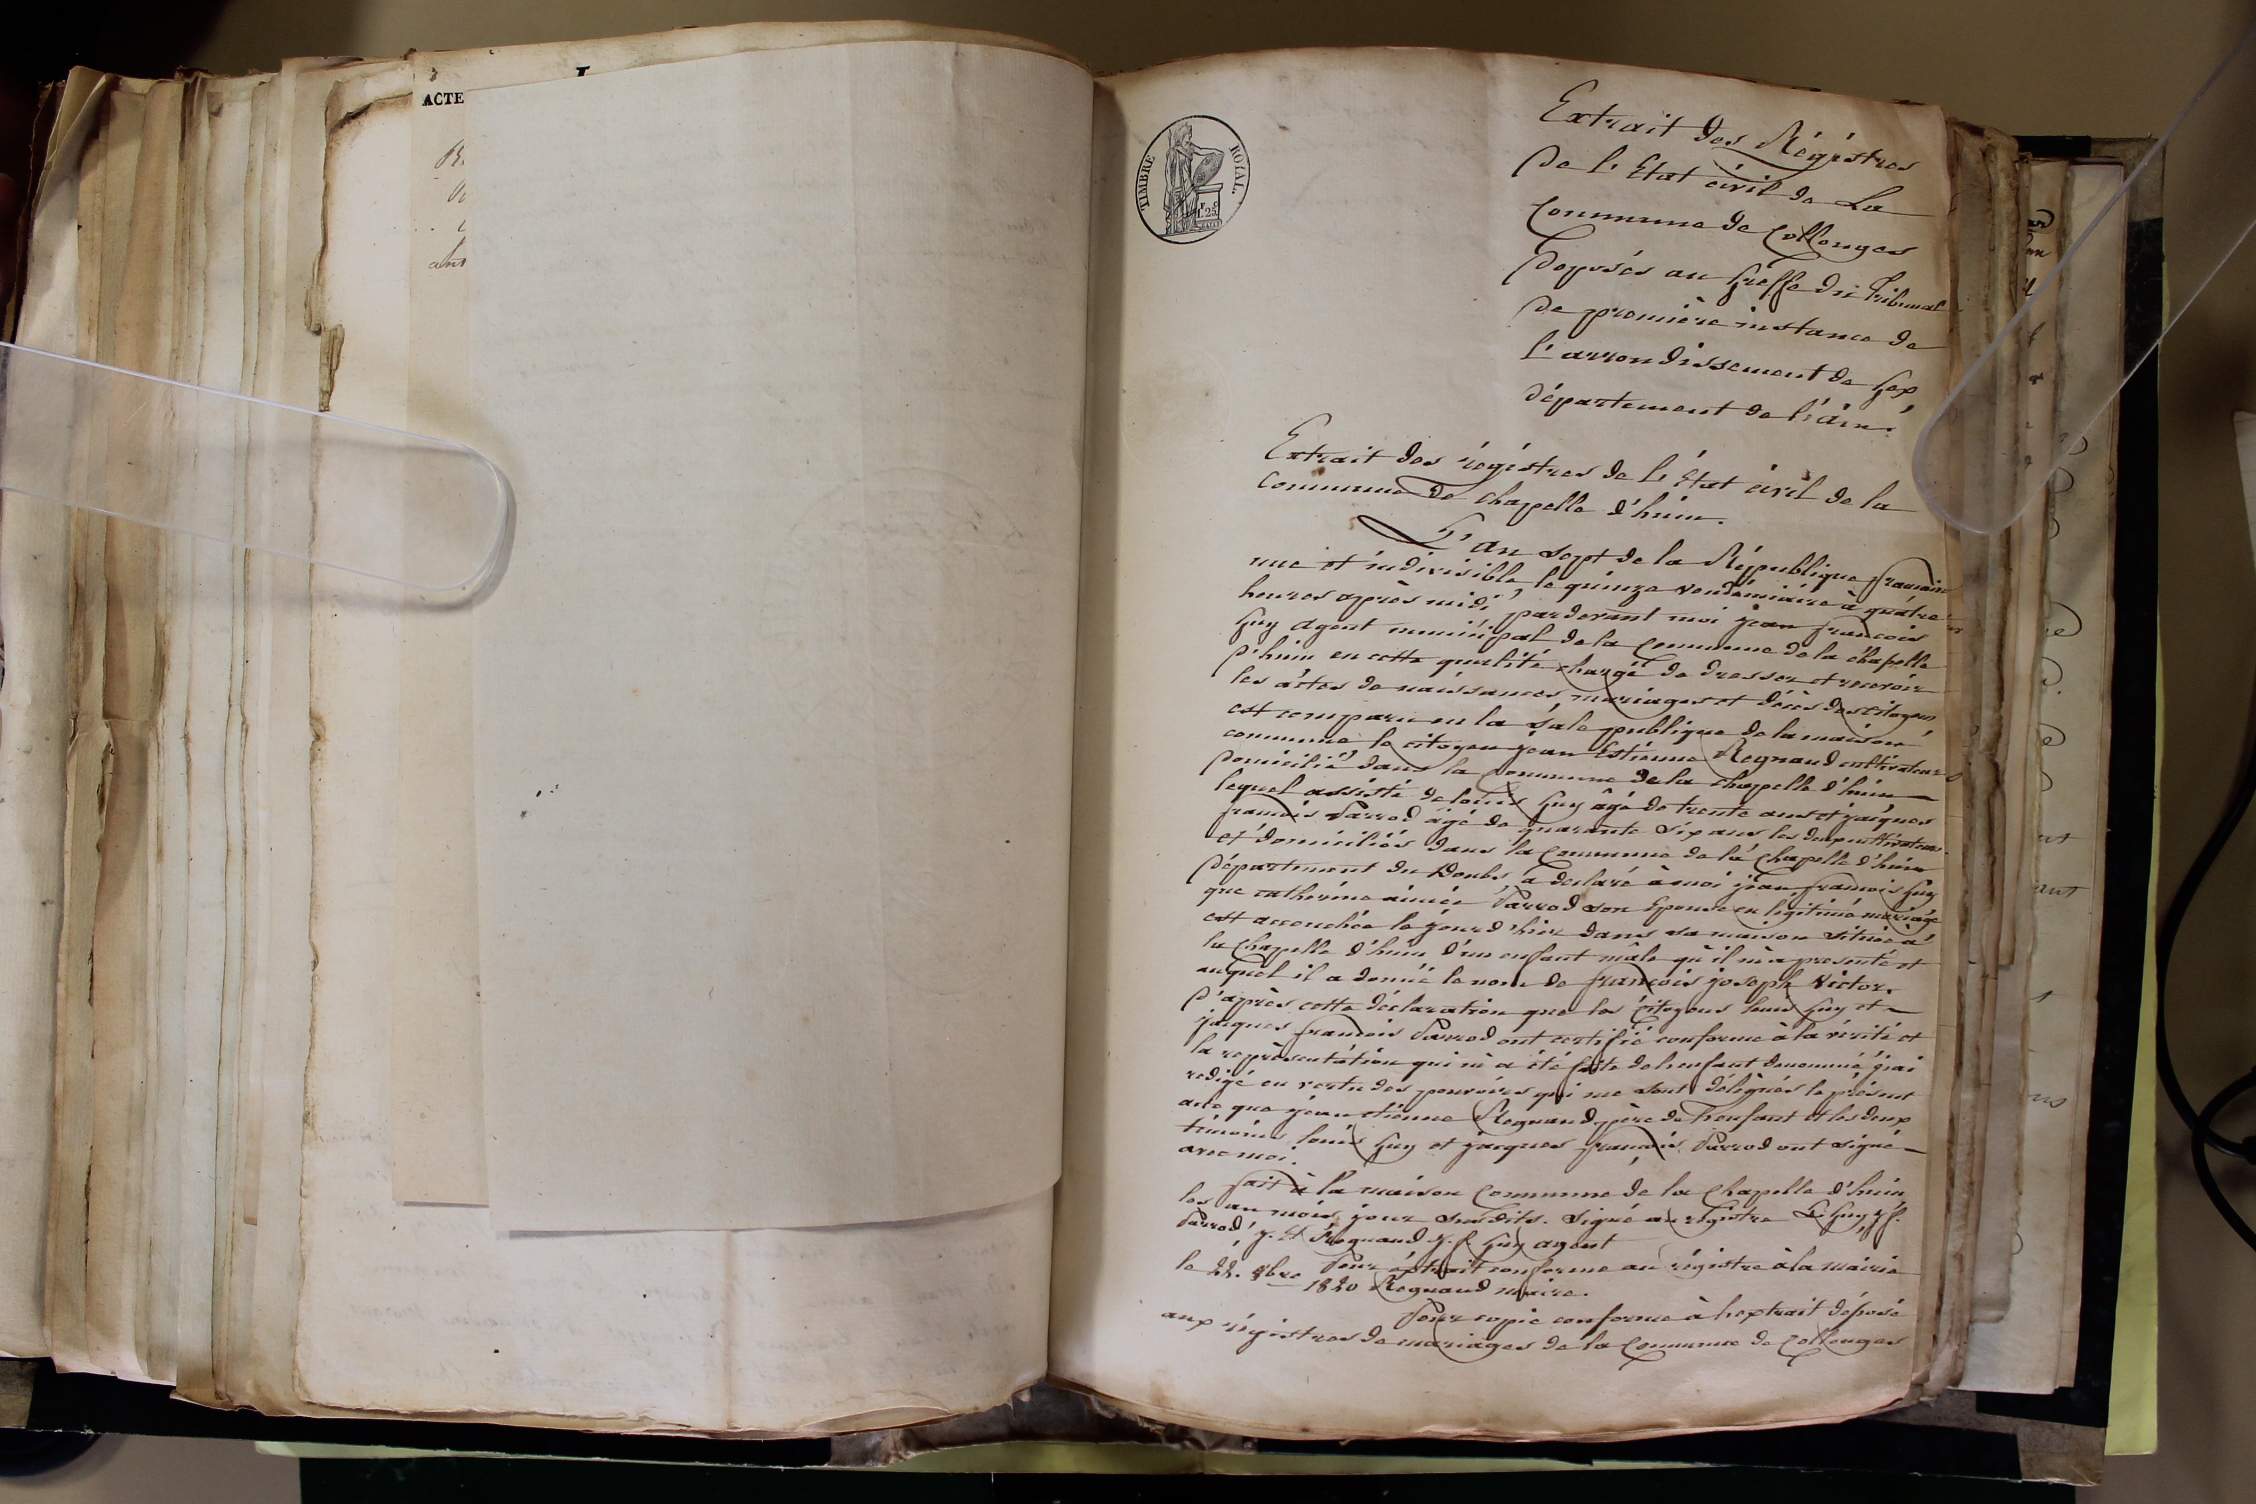 ACTE
TIMBRE ROYAL.
Extrait des Régistres
De l'Etat civil de La
Commune de Collonges
Déposés au Greffe du Tribunal
De première instance de
l'arrondissement de Gex
département de l'ain.
Extrait des régistres de l'État civil de la
Commune de Chapelle d'huin.
L'an sept de la République francaise
une et indivisible, le quinze vendémiaire à quatre
heures après midi, pardevant moi jean francois
Guy agent municipal de la Commune de la chapelle
d'huin en cette qualité chargé de dresser et recevoir
les actes de naissances, mariages et décès des citoyens
est comparu en la sale publique de la maison
commune le citoyen jean Estienne Regnaud cultivateur
domicilié dans la Commune de la chapelle d'huin
lequel assisté de louis Guy âgé de trente ans et jacques
francois Parrod agé de quarante six ans les deux cultivateurs
et domiciliés dans la Commune de la Chapelle d'huin
Département du Doubs, a declaré à moi jean francois Guy
que catherine aimée Parrod son Epouse en légitime mariage
est accouchée le jourd'hier dans sa maison située à
la Chapelle d'huin d'un enfant mâle qu'il m'a presenté et
auquel il a donné le nom de francois joseph Victor.
D'après cette déclaration que les Citoyens louis Guy et
jacques francois Parrod ont certifié conforme à la vérité et
la représentation qui m'a été faite de l'enfant denommé j'ai
redigé en vertu des pouvoirs qui me sont délégués le présent
acte que jean etienne Regnaud père de l'enfant et les deux
témoins louis Guy et jacques francois Parrod ont signé
avec moi.
fait à la maison Commune de la Chapelle d'huin
les an mois jour susdits. signé au régistre L. Guy, j. f.
Parrod, j. Et Regnaud, j. f. Guy agent
Pour extrait conforme au régistre à la mairie
le 22. 8bre 1820 Regnaud maire.
Pour copie conforme à l'extrait déposé
aux régistres de mariages de la Commune de Collonges